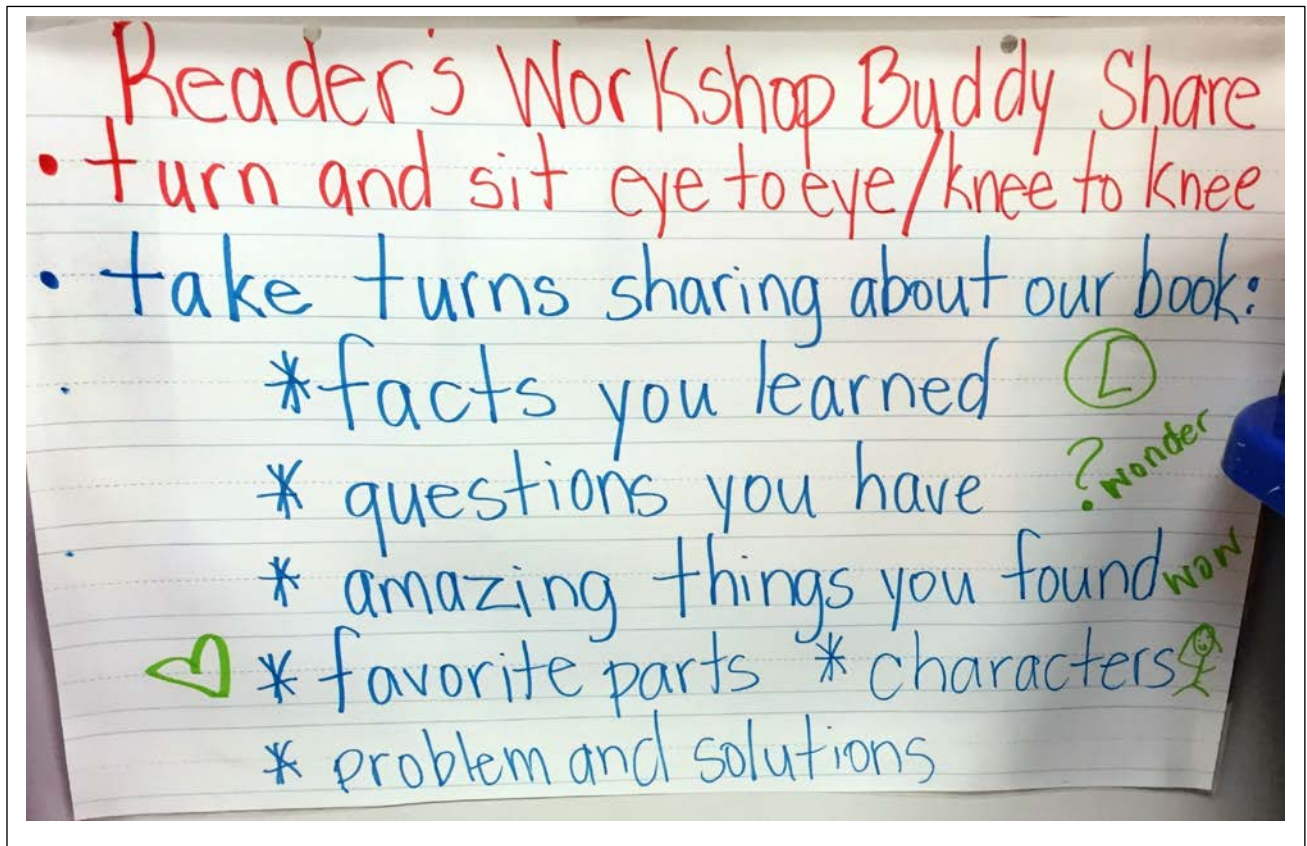 Reader's Workshop Buddy Share
• turn and sit eye to eye/knee to knee
• take turns sharing about our book:
*facts you learned L
* questions you have ? wonder
* amazing things you found wow
* favorite parts * characters
* problem and solutions